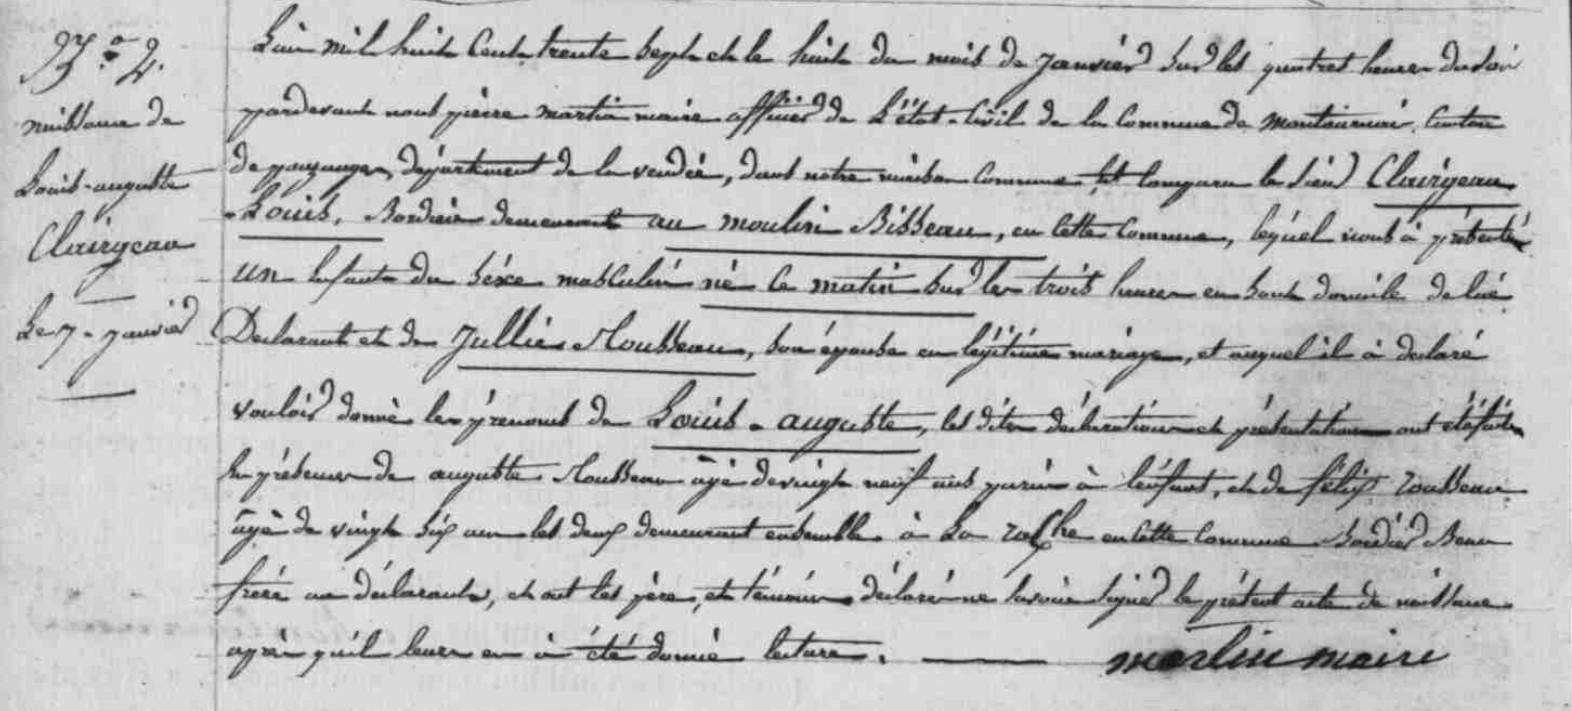 N.o 2.
naissance de
Louis-auguste
Clairgeau
Le 7. janvier
L'an mil huit Cent trente sept et le huit du mois de janvier sur les quatres heures du soir
pardevant nous pierre martin maire officier de L'état-Civil de la Commune de montournais, Canton
de pouzauges, département de la vendée, dans notre maison Commune, est Comparu le sieur Clairgeau
Louis, Bordier demeurant au moulin Bisseau, en Cette Commune, lequel nous à présenté
un enfant du sèxe masculin né Ce matin sur les trois heures en sont domicile de lui
Déclarant et de Jullie Rousseau, son épouse en légitime mariage, et auquel il à déclaré
vouloir donné les prénoms de Louis-auguste, les dites déclaration et présentation ont été faites
en présence de auguste Rousseau âgé de vingt neuf ans parain à l'enfant, et de félix rousseau
âgé de vingt six ans les deux demeurant ensemble à La roche en Cette Commune Bordier Beau
frère au déclarant, et ont les père, et témoins déclaré ne savoir signer le présent acte de naissance
après qu'il leurs en à été donné lecture.
martin maire